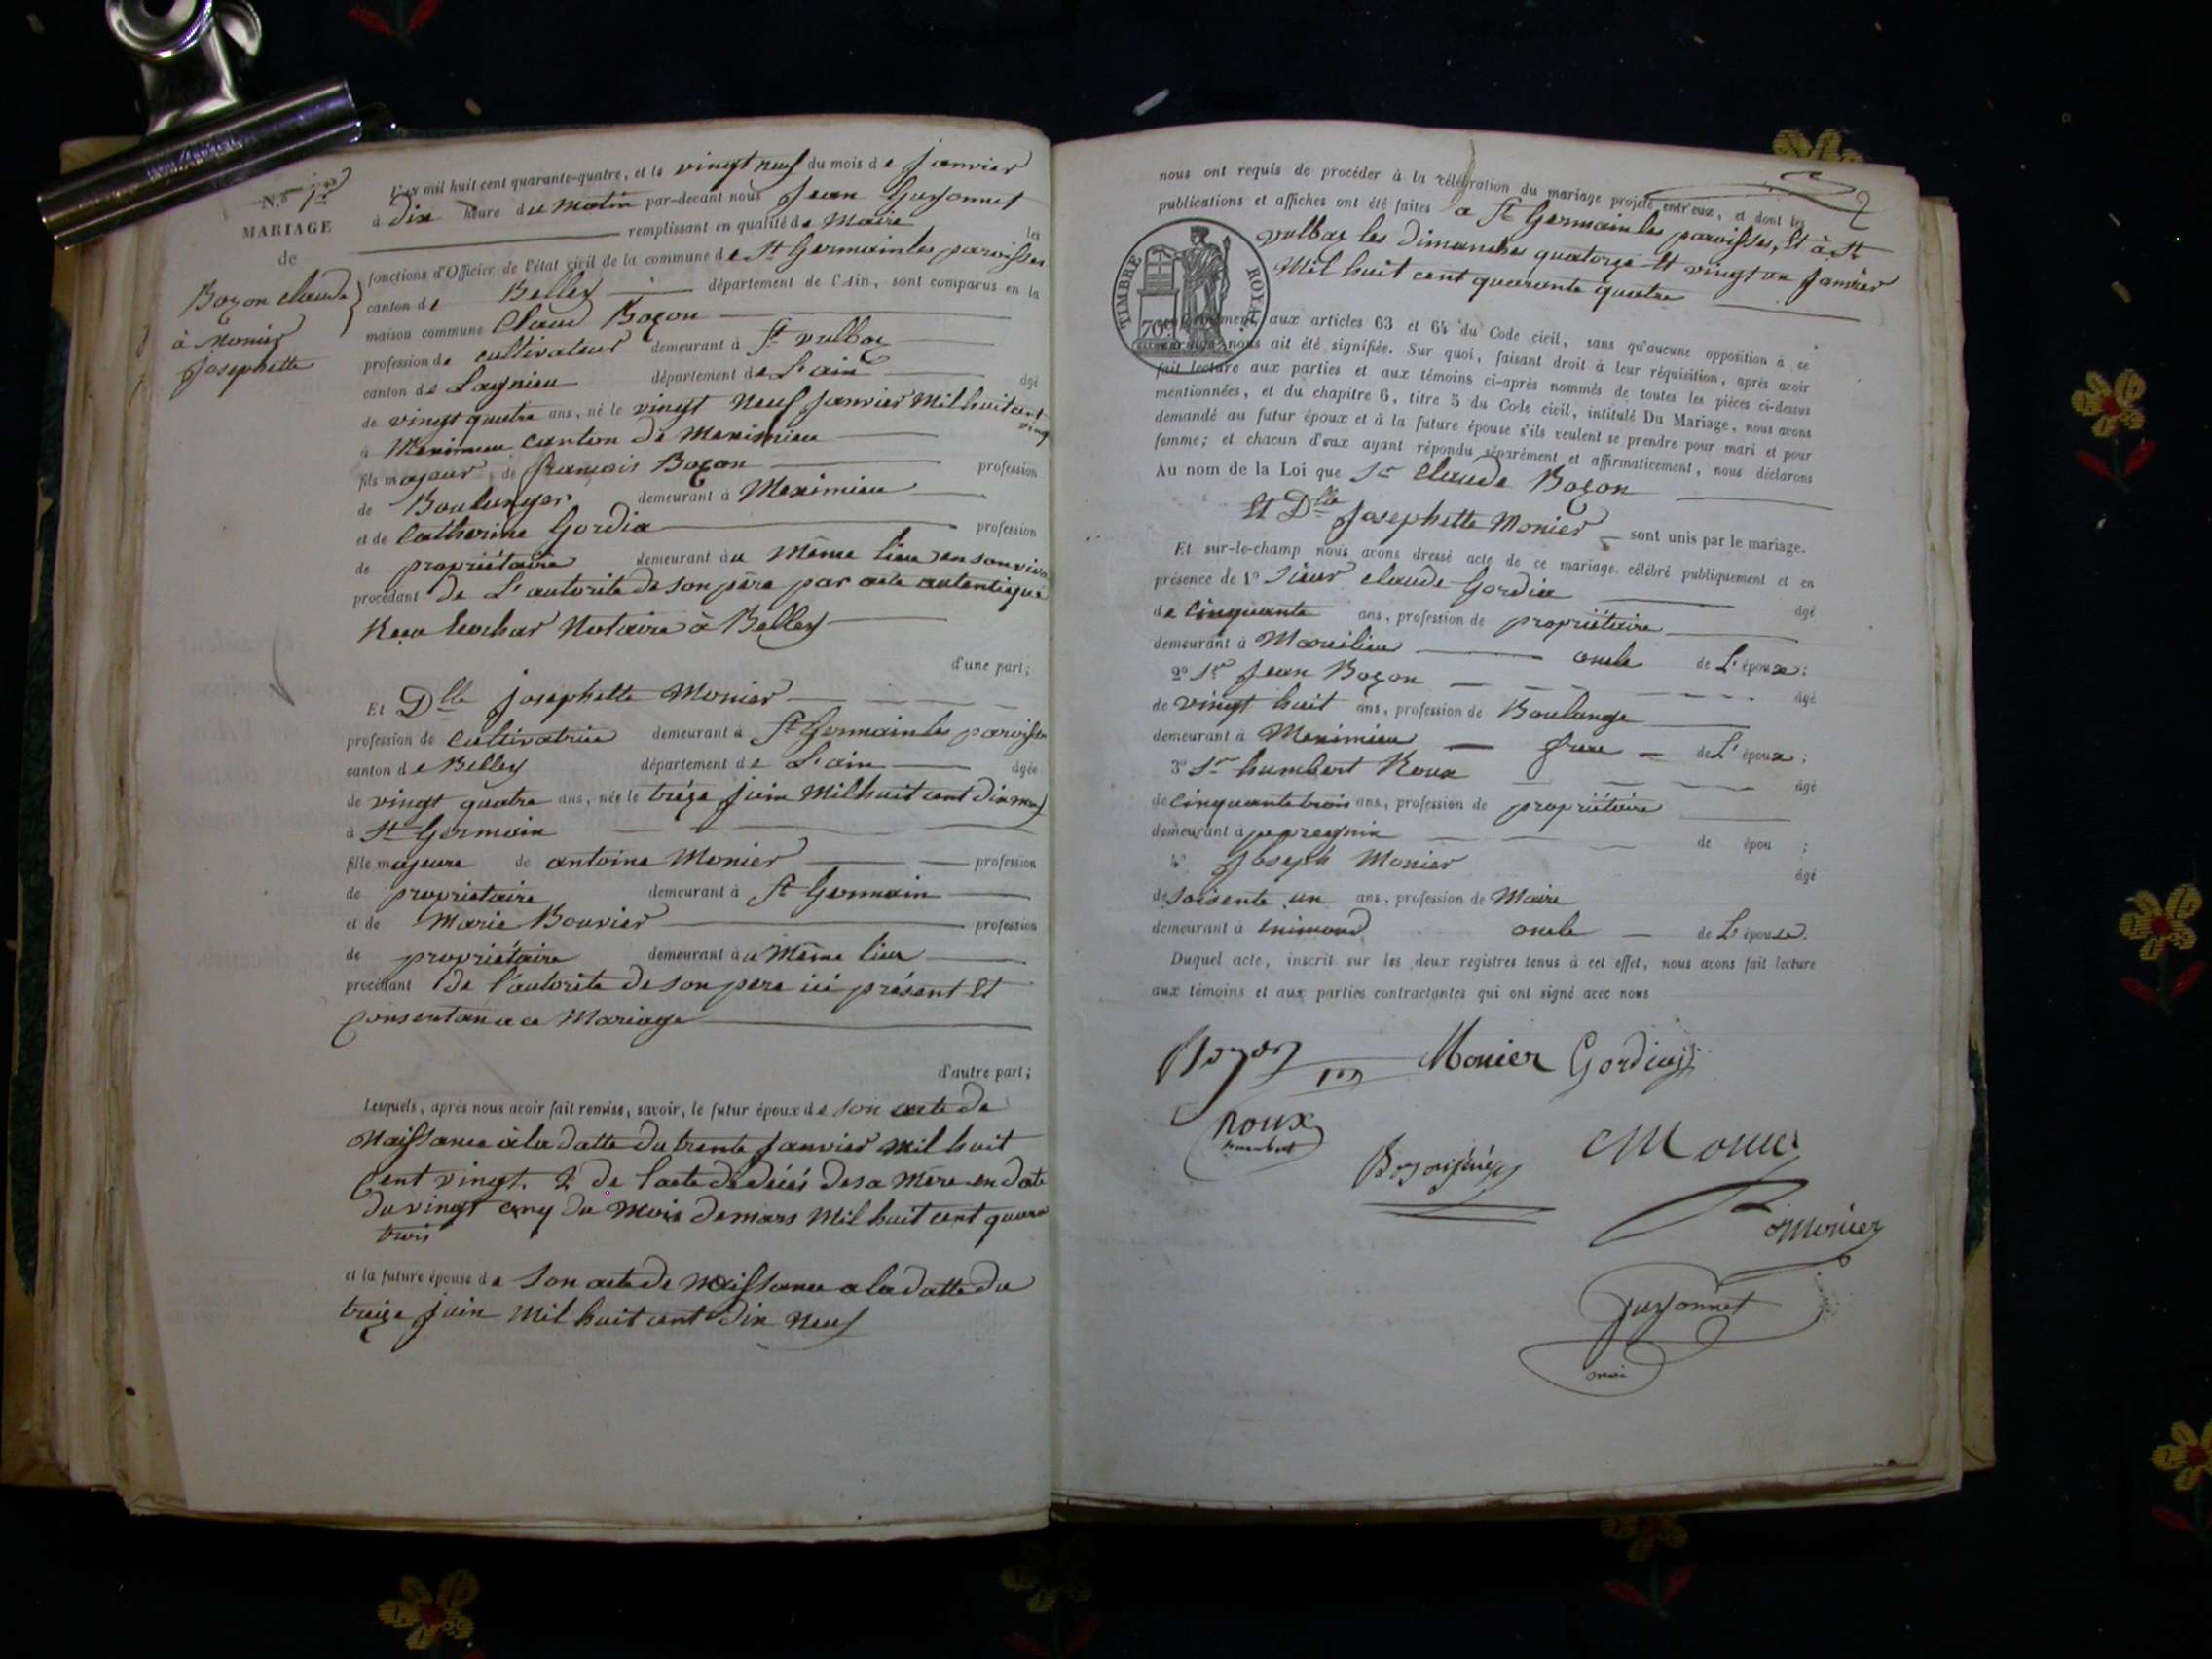 N.o 1er
MARIAGE
de
Bozon Claude
à Monier
Josephette
L'an mil huit cent quarante-quatre, et le vingt neuf du mois de janvier
à dix heure du matin par-devant nous Jean Guyonnet
remplissant en qualité de Maire les
fonctions d'Officier de l'état civil de la commune de St Germain les paroisses
canton de Belley département de l'Ain, sont comparus en la
maison commune Claud Bozon
profession de cultivateur demeurant à St vulbas
canton de Lagnieu département de L'ain âgé
de vingt quatre ans, né le vingt neuf janvier mil huit cent vingt
à Meximieu canton de Meximieu
fils majeur de francois Bozon profession
de Boulanger demeurant à Meximieu
et de Catherine Gordia profession
de propriétaire demeurant au même lieu en son viva
procédant de L'autorité de son père par acte autentique
Recu Notaire à Belley
d'une part;
Et Dlle Josephette Monier
profession de cultivatrice demeurant à St Germain les paroisses
canton de Belley département de L'ain âgée
de vingt quatre ans, née le treize juin mil huit cent dix neuf
à St Germain
fille majeure de antoine Monier profession
de propriétaire demeurant à St Germain
et de Marie Bouvier profession
de propriétaire demeurant au même lieu
procédant de l'autorité de son pere ici présent Et
Consentan a ce Mariage
d'autre part;
Lesquels, après nous avoir fait remise, savoir, le futur époux de son acte de
Naissance à la datte du trente Janvier mil huit
Cent vingt. 2 de l'acte de décés de sa mère en date
du vingt cinq du mois de mars mil huit cent quara
trois
et la future épouse de Son acte de Naissance a la datte du
treize juin mil huit cent dix neuf
nous ont requis de procéder à la célébration du mariage projeté entr'eux, et dont les
publications et affiches ont été faites a St Germain les paroisses, Et à St
vulbas les dimanches quatorze Et vingt un janvier
Mil huit cent quarante quatre
TIMBRE ROYAL
70
conformément aux articles 63 et 64 du Code civil, sans qu'aucune opposition à ce
mariage nous ait été signifiée. Sur quoi, faisant droit à leur réquisition, après avoir
fait lecture aux parties et aux témoins ci-après nommés de toutes les pièces ci-dessus
mentionnées, et du chapitre 6, titre 5 du Code civil, intitulé Du Mariage, nous avons
demandé au futur époux et à la future épouse s'ils veulent se prendre pour mari et pour
femme; et chacun d'eux ayant répondu séparément et affirmativement, nous déclarons
Au nom de la Loi que Sr Claude Bozon
Et Dlle Josephette Monier sont unis par le mariage.
Et sur-le-champ nous avons dressé acte de ce mariage, célébré publiquement et en
présence de 1o Sieur claude Gordia âgé
de cinquante ans, profession de propriétaire
demeurant à oncle de L'époux;
2o Sr Jean Bozon âgé
de vingt huit ans, profession de Boulange
demeurant à Meximieu frere de L'époux;
3o Sr humbert Roux âgé
de cinquante trois ans, profession de propriétaire
demeurant à de épou ;
4o Joseph Monier âgé
de soisente un ans, profession de Maire
demeurant à oncle de L'épouse.
Duquel acte, inscrit sur les deux registres tenus à cet effet, nous avons fait lecture
aux témoins et aux parties contractantes qui ont signé avec nous
Bozon Monier Gordia
Roux
humbert
Monier
Monier
Guyonnet